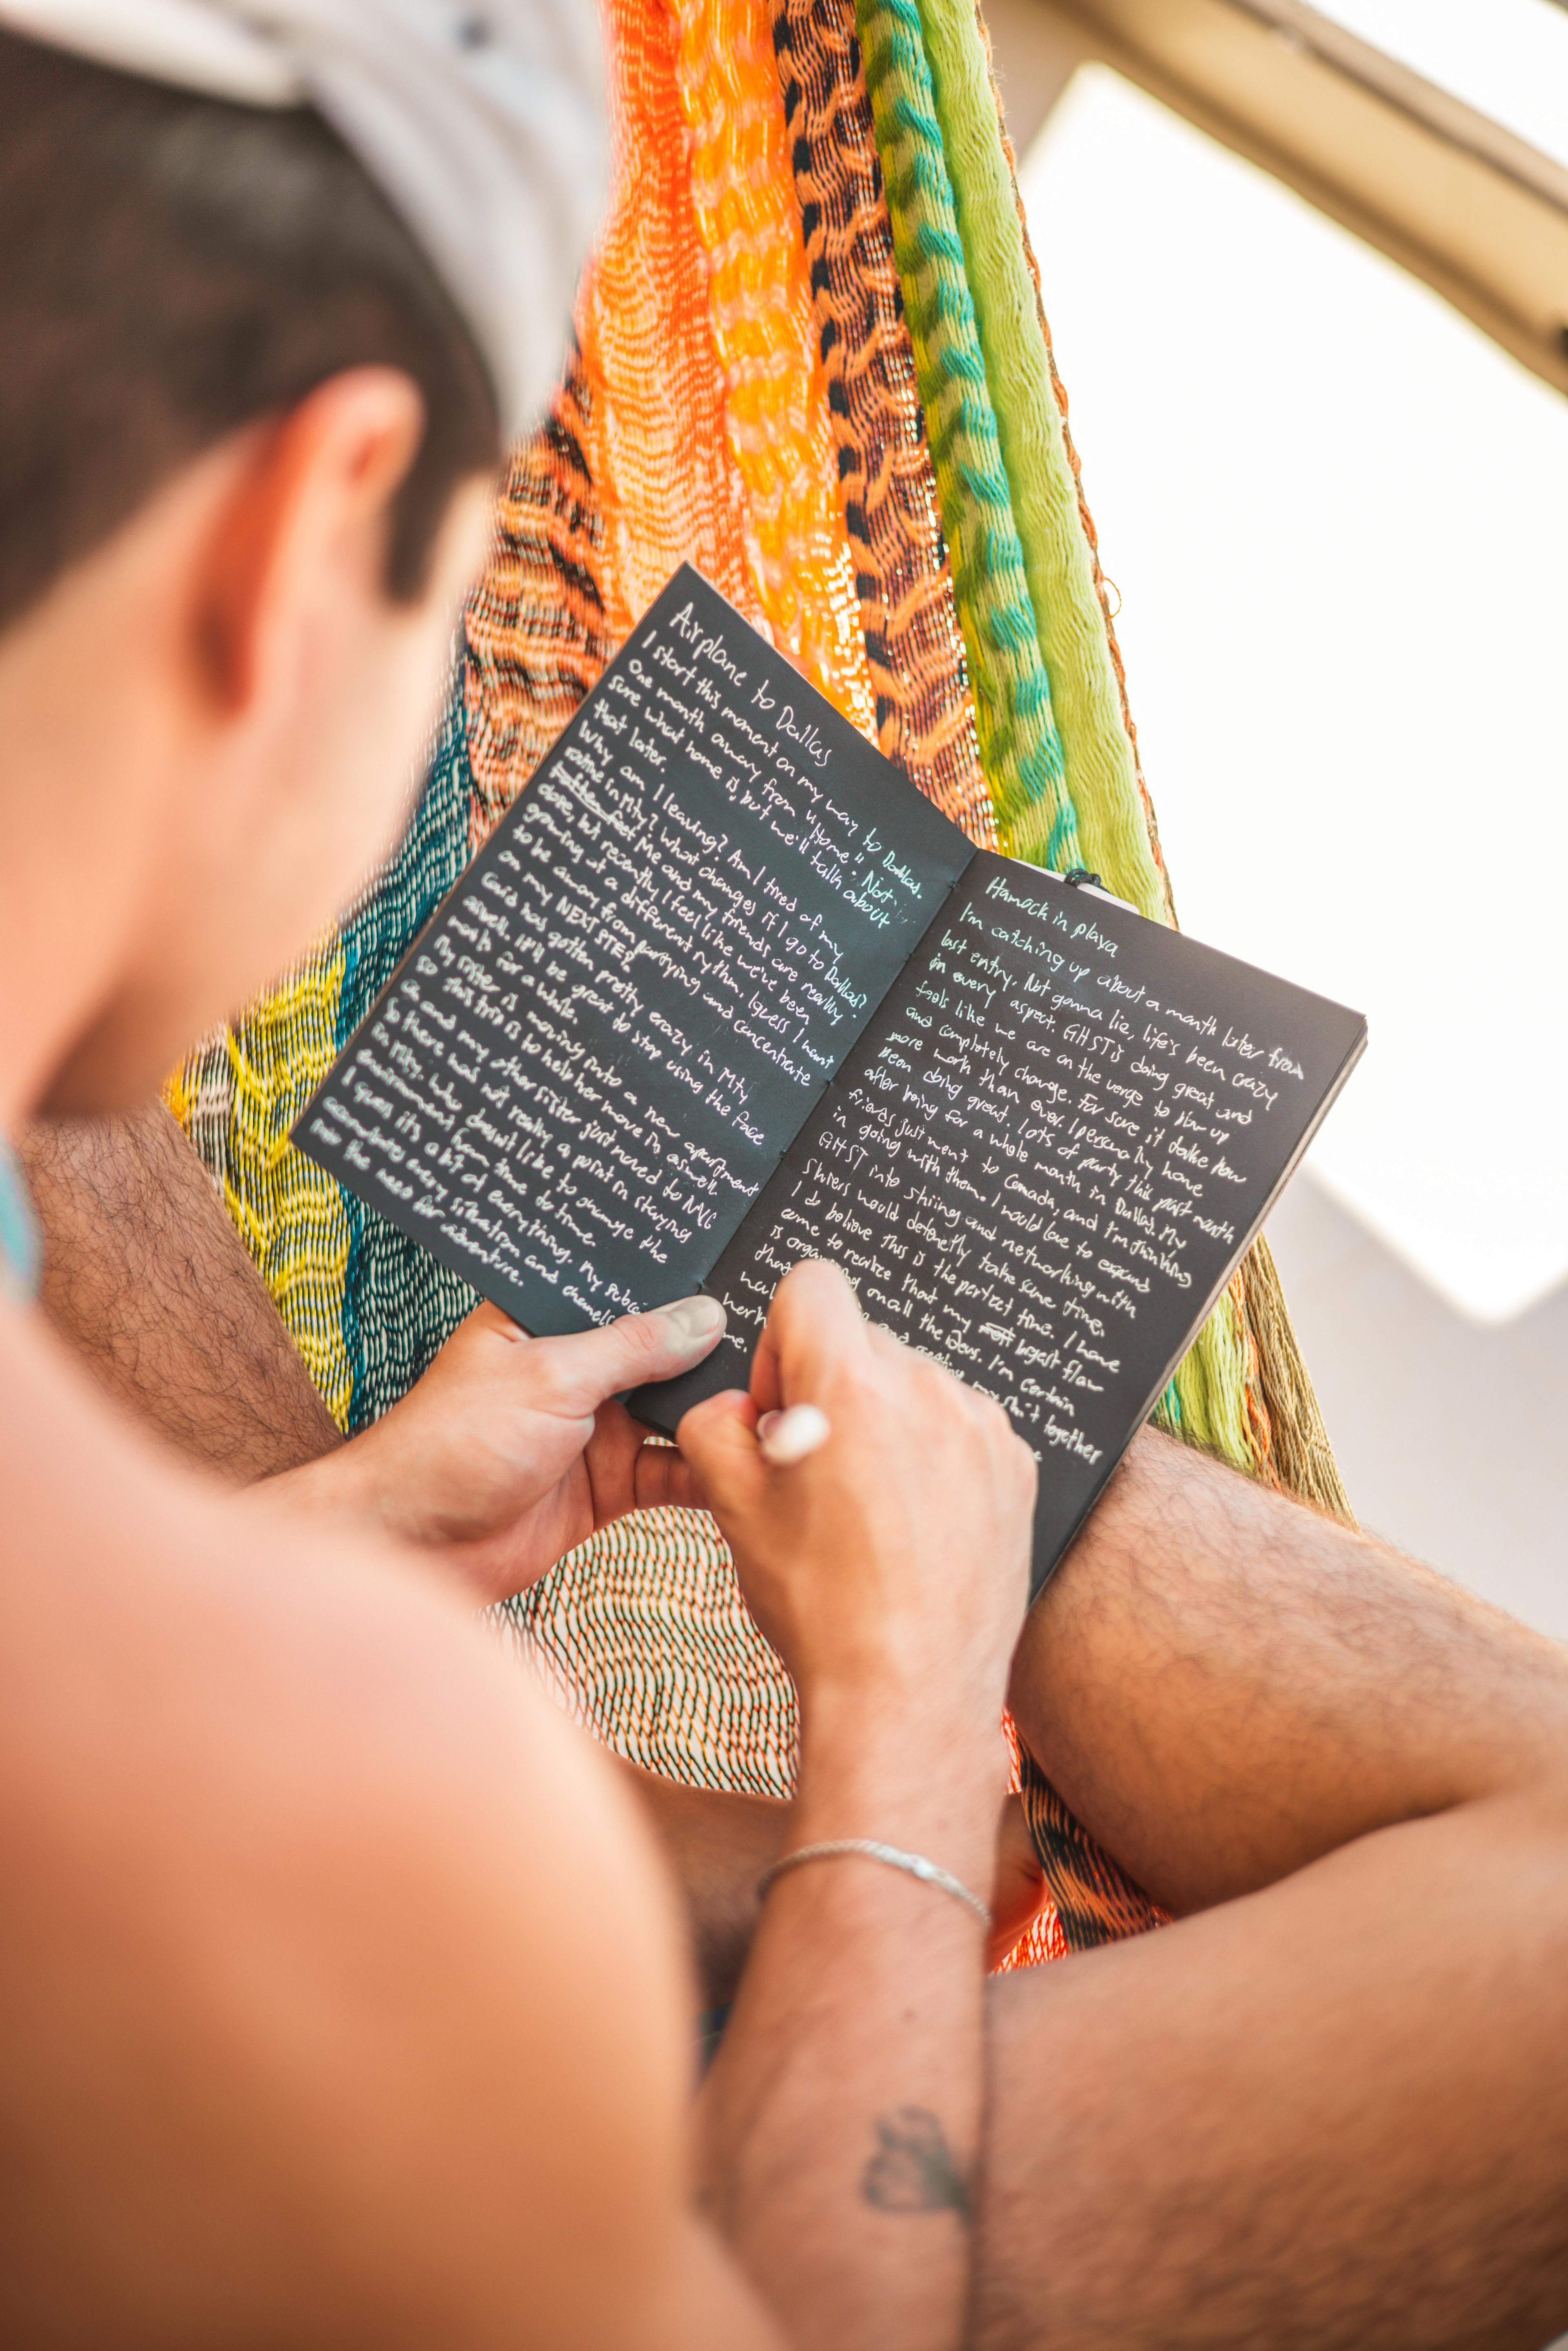 Airplane to Dallas
I start this moment on my way to Dallas.
One month away from "Home". Not
sure what home is, but we'll talk about
that later.
Why am I leaving? Am I tired of my
routine in Mty? What changes if I go to Dallas?
Me and my friends are really
close, but recently I feel like we've been
growing at a different rythm. I guess I want
to be away from partying and concentrate
on my NEXT STEP.
has gotten pretty crazy in Mty
aswell, it'll be great to stop using the face
mask for a while.
My sister is moving into a new apartment
so this trip is to help her move in aswell.
and my other sister just moved to
So there was not really a point in staying
in Mty. Who doesn't like to change the
enviroment from time to time.
I guess it's a bit of everything. My
every situation and
me the need for adventure.
Hamock in playa
I'm catching up about a month later from
last entry. Not gonna lie, life's been crazy
in every aspect. GHST is doing great and
feels like we are on the verge to blow up
and completely change. For sure it takes
more work than ever. I personally have
been doing great. Lots of party this past month
after being for a whole month in Dallas. My
friends just went to Canada, and I'm thinking
in going with them. I would love to expand
GHST into shiing and networking with
shiers would defenetly take some time.
I do believe this is the perfect time. I have
come to realize that my bigest flaw
is on all the ideas. I'm certain
and my shit together
me.